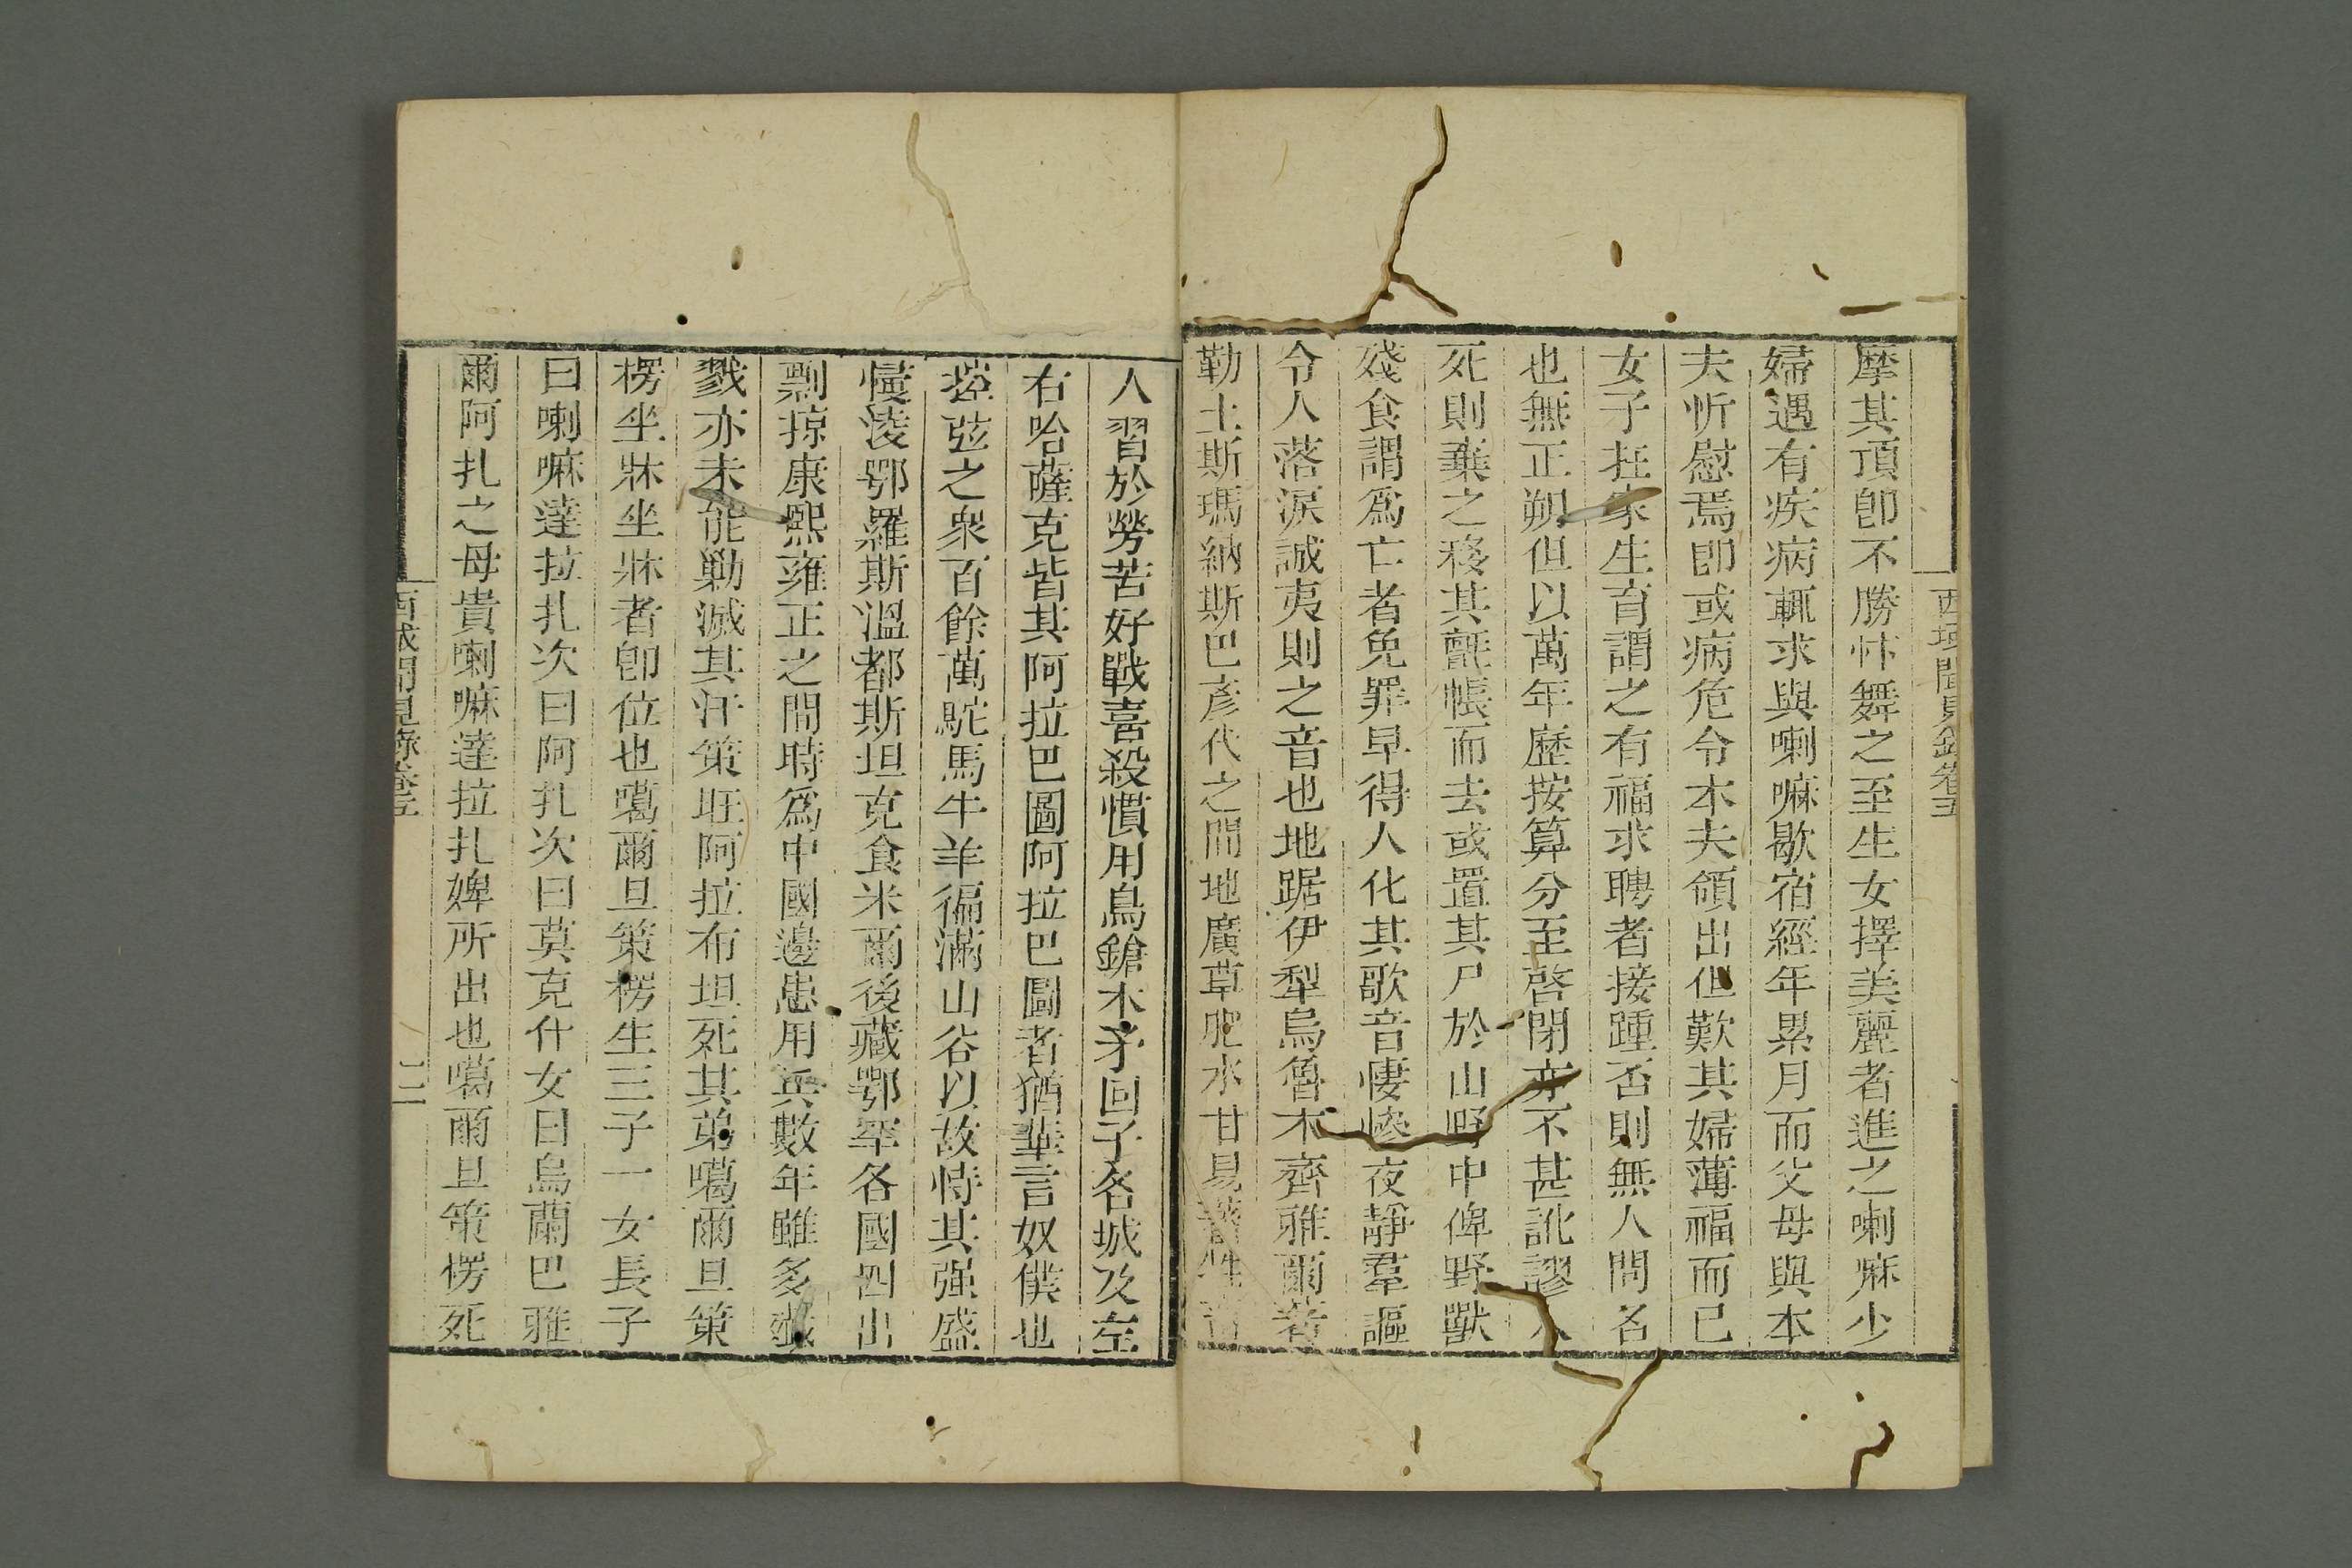 西域聞見錄卷五
摩其頂卽不勝忭舞之至生女擇美麗者進之喇嘛少
婦遇有疾病輒求與喇嘛歇宿經年累月而父母與本
夫忻慰焉卽或病危令本夫領出但歎其婦薄福而已
女子在家生育謂之有福求聘者接踵否則無人問名
也無正朔但以萬年歷按算分至啓閉亦不甚訛謬人
死則棄之移其氈帳而去或置其尸於山野中俾野獸
殘食謂爲亡者免罪早得人化其歌音悽慘夜靜羣謳
令人落淚誠夷則之音也地踞伊犁烏魯木齊雅爾巷
勒土斯瑪納斯巴彥代之間地廣草肥水甘易
人習於勞苦好戰喜殺慣用鳥鎗木矛回子各城及左
右哈薩克皆其阿拉巴圖阿拉巴圖者猶華言奴僕也
控弦之衆百餘萬駝馬牛羊徧滿山谷以故恃其强盛
慢淩鄂羅斯溫都斯坦克食米爾後藏鄂罕各國四出
剽掠康熙雍正之間時爲中國邊患用兵數年雖多殲
戮亦未能勦滅其汗策旺阿拉布坦死其弟噶爾旦策
楞坐牀坐牀者卽位也噶爾旦策楞生三子一女長子
曰喇嘛達拉扎次曰阿扎次曰莫克什女曰烏蘭巴雅
爾阿扎之母貴喇嘛達拉扎婢所出也噶爾旦策楞死
西域聞見錄卷五
二